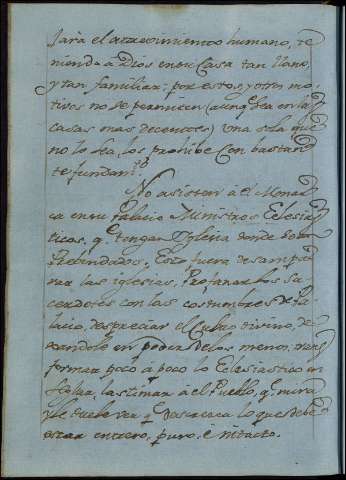 Jara el atrevimiento humano, te
niendo a Dios en su Casa tan llano,
y tan familiar: por estos, y otros mo-
tivos no se permiten (aunq. sea en las
casas mas decentes) Una sola que
no lo sea, los prohibe con bastan
te fundam.to
No asisten â el Mona
ca en su Palacio Ministros Eclesias
ticos, q. tengan Yglesia donde son
Prebendados, Esto fuera desampa
rar las iglesias, Profanar los Sa-
cerdotes con las costumbres de Pa-
lacio, despreciar el Culto divino, de
xandole en poder de los menos, trans
formar poco â poco lo Eclesiastico en
seglar, lastimar â el Pueblo, q. mira,
y le duele ver q. desacaca lo que debe
estar entero, puro, ê intacto.